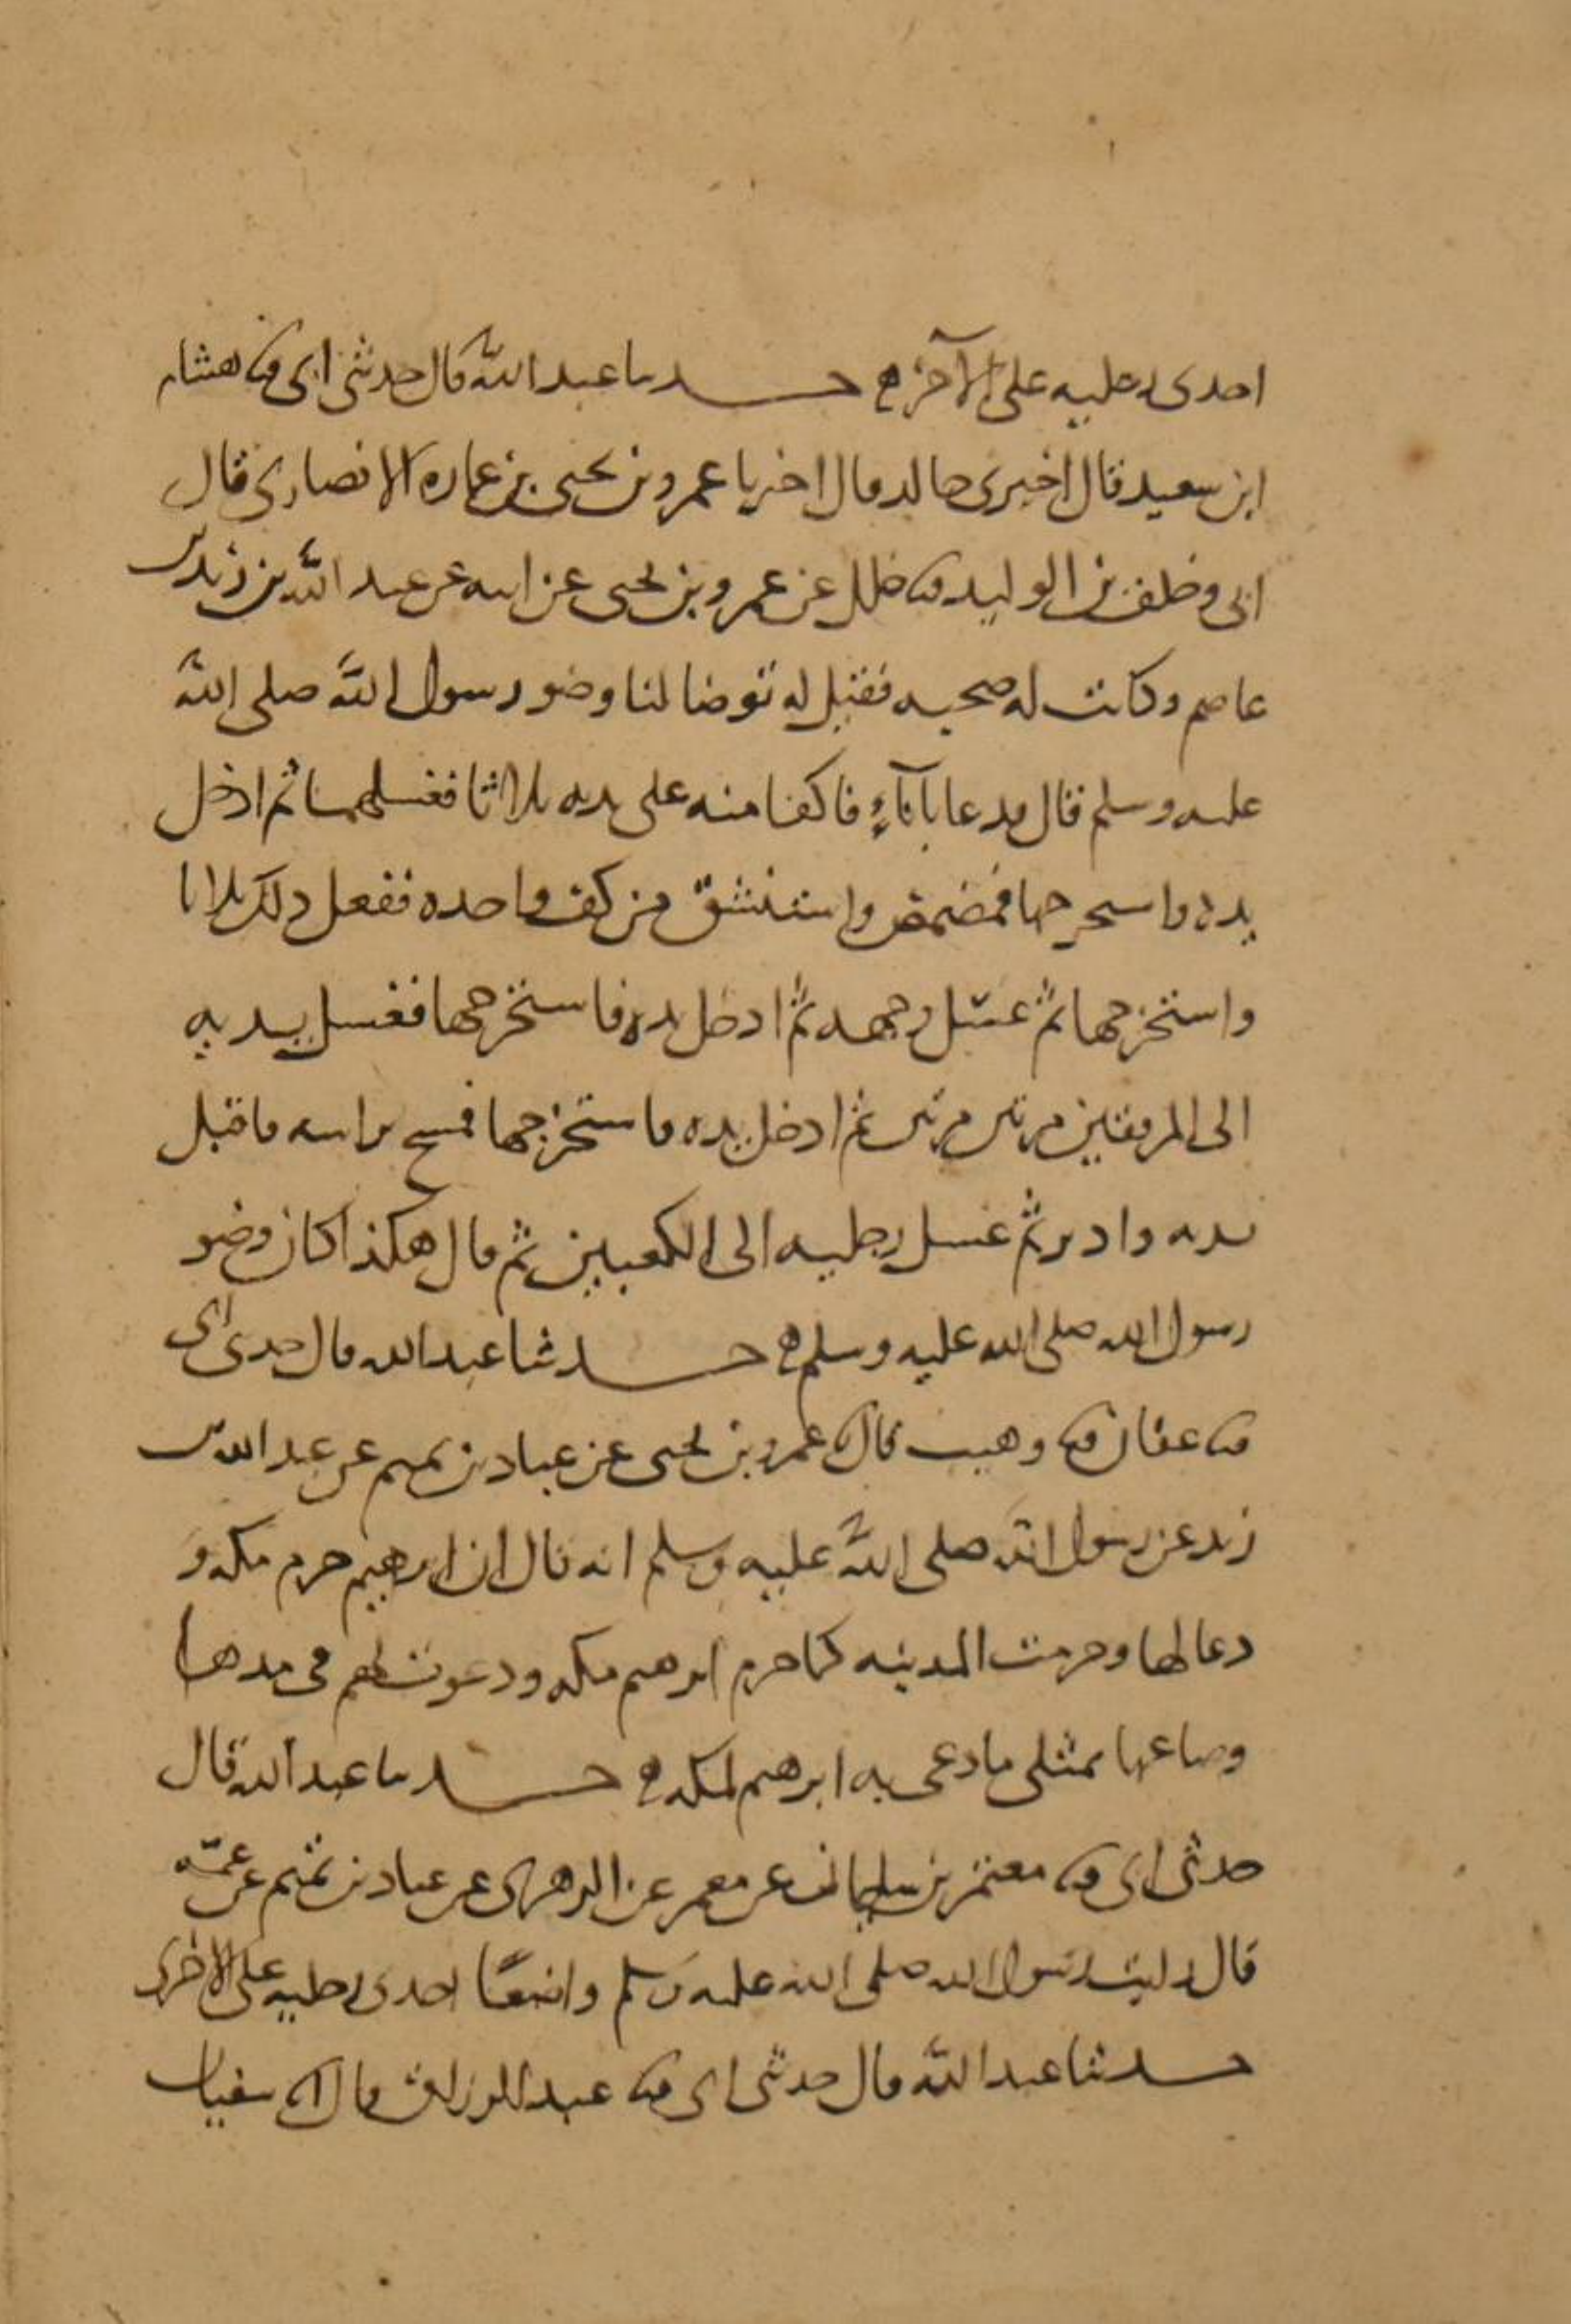 احدى رجليه على الاخرى ه حدثنا عبد الله قال حدثني ابي ثنا هشام
ابن سعيد قال اخبرني خالد قال اخبرنا عمرو بن يحيى بن عماره الانصاري قال
ابي وخلف بن الوليد ثنا خلد عن عمرو بن يحيى عن ابيه عن عبد الله بن زيد بن
عاصم وكانت له صحبه فقيل له توضا لنا وضو رسول الله صلى الله
عليه وسلم قال فدعا باناء فاكفا منه على يديه ثلاثا فغسلهما ثم ادخل
يده واستخرجها فمضمض واستنشق من كف واحده ففعل ذلك ثلاثا
واستخرجها ثم غسل وجهه ثم ادخل يده فاستخرجها فغسل يديه
الى المرفقين مرتين مرتين ثم ادخل يده فاستخرجها فمسح براسه فاقبل
بيديه وادبر ثم غسل رجليه الى الكعبين ثم قال هكذا كان وضو
رسول الله صلى الله عليه وسلم ه حدثنا عبد الله قال حدثني ابي
ثنا عفان ثنا وهيب قال ثنا عمرو بن يحيى عن عباد بن تميم عن عبد الله بن
زيد عن رسول الله صلى الله عليه وسلم انه قال ان ابرهيم حرم مكه و
دعا لها وحرمت المدينه كما حرم ابرهيم مكه ودعوت لهم في مدها
وصاعها بمثلي ما دعى به ابرهيم لمكه ه حدثنا عبد الله قال
حدثني ابي ثنا معتمر بن سليمان عن معمر عن الزهري عن عباد بن تميم عن عمه
قال رايت رسول الله صلى الله عليه وسلم واضعا احدى رجليه على الاخرى
حدثنا عبد الله قال حدثني ابي ثنا عبد الرزاق قال انا سفيان